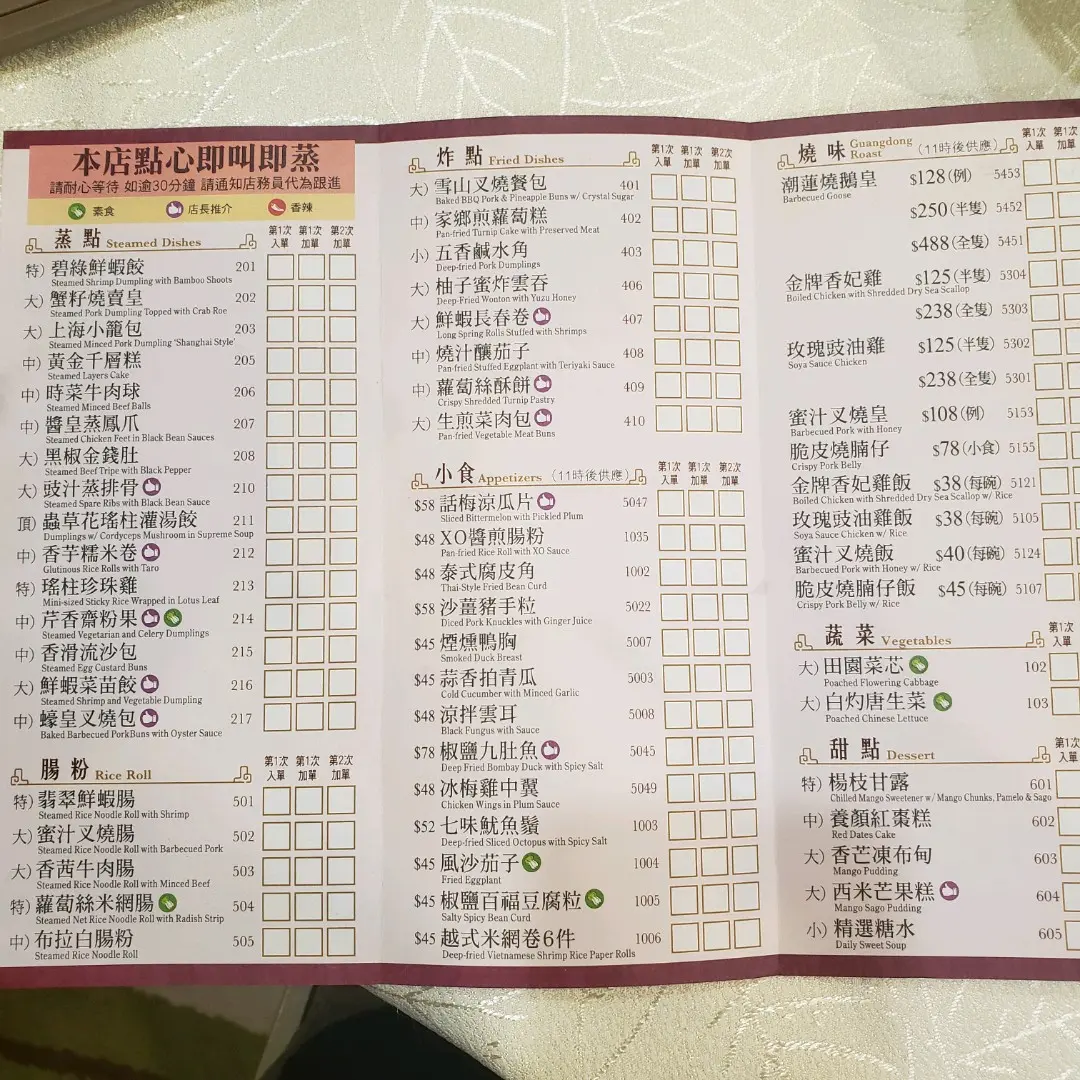 本店點心即叫即蒸
請耐心等待 如逾30分鐘 請通知店務員代為跟進
素食 店長推介 香辣
蒸點 Steamed Dishes 第1次入單 第1次加單 第2次加單
特) 碧綠鮮蝦餃 201
Steamed Shrimp Dumpling with Bamboo Shoots
大) 蟹籽燒賣皇 202
Steamed Pork Dumpling Topped with Crab Roe
大) 上海小籠包 203
Steamed Minced Pork Dumpling 'Shanghai Style'
中) 黃金千層糕 205
Steamed Layers Cake
中) 時菜牛肉球 206
Steamed Minced Beef Balls
中) 醬皇蒸鳳爪 207
Steamed Chicken Feet in Black Bean Sauces
大) 黑椒金錢肚 208
Steamed Beef Tripe with Black Pepper
大) 豉汁蒸排骨 210
Steamed Spare Ribs with Black Bean Sauce
頂) 蟲草花瑤柱灌湯餃 211
Dumplings w/ Cordyceps Mushroom in Supreme Soup
中) 香芋糯米卷 212
Glutinous Rice Rolls with Taro
特) 瑤柱珍珠雞 213
Mini-sized Sticky Rice Wrapped in Lotus Leaf
中) 芹香齋粉果 214
Steamed Vegetarian and Celery Dumplings
中) 香滑流沙包 215
Steamed Egg Custard Buns
大) 鮮蝦菜苗餃 216
Steamed Shrimp and Vegetable Dumpling
中) 蠔皇叉燒包 217
Baked Barbecued PorkBuns w/ Oyster Sauce
腸粉 Rice Roll 第1次入單 第1次加單 第2次加單
特) 翡翠鮮蝦腸 501
Steamed Rice Noodle Roll with Shrimp
大) 蜜汁叉燒腸 502
Steamed Rice Noodle Roll with Barbecued Pork
大) 香茜牛肉腸 503
Steamed Rice Noodle Roll with Minced Beef
特) 蘿蔔絲米網腸 504
Steamed Net Rice Noodle Roll with Radish Strip
中) 布拉白腸粉 505
Steamed Rice Noodle Roll
炸點 Fried Dishes 第1次入單 第1次加單 第2次加單
大) 雪山叉燒餐包 401
Baked BBQ Pork & Pineapple Buns w/ Crystal Sugar
中) 家鄉煎蘿蔔糕 402
Pan-fried Turnip Cake with Preserved Meat
小) 五香鹹水角 403
Deep-fried Pork Dumplings
大) 柚子蜜炸雲吞 406
Deep-Fried Wonton with Yuzu Honey
大) 鮮蝦長春卷 407
Long Spring Rolls Stuffed with Shrimps
中) 燒汁釀茄子 408
Pan-fried Stuffed Eggplant with Teriyaki Sauce
中) 蘿蔔絲酥餅 409
Crispy Shredded Turnip Pastry
大) 生煎菜肉包 410
Pan-fried Vegetable Meat Buns
小食 Appetizers (11時後供應) 第1次入單 第1次加單 第2次加單
$58 話梅涼瓜片 5047
Sliced Bittermelon with Pickled Plum
$48 XO醬煎腸粉 1035
Pan-fried Rice Roll with XO Sauce
$48 泰式腐皮角 1002
Thai-Style Fried Bean Curd
$58 沙薑豬手粒 5022
Diced Pork Knuckles with Ginger Juice
$45 煙燻鴨胸 5007
Smoked Duck Breast
$45 蒜香拍青瓜 5003
Cold Cucumber with Minced Garlic
$48 涼拌雲耳 5008
Black Fungus with Sauce
$78 椒鹽九肚魚 5045
Deep Fried Bombay Duck with Spicy Salt
$48 冰梅雞中翼 5049
Chicken Wings in Plum Sauce
$52 七味魷魚鬚 1003
Deep-fried Sliced Octopus with Spicy Salt
$45 風沙茄子 1004
Fried Eggplant
$45 椒鹽百福豆腐粒 1005
Salty Spicy Bean Curd
$45 越式米網卷6件 1006
Deep-fried Vietnamese Shrimp Rice Paper Rolls
燒味 Guangdong Roast (11時後供應) 第1次入單 第1次加單
潮蓮燒鵝皇 $128(例) 5453
Barbecued Goose
$250(半隻) 5452
$488(全隻) 5451
金牌香妃雞 $125(半隻) 5304
Boiled Chicken with Shredded Dry Sea Scallop
$238(全隻) 5303
玫瑰豉油雞 $125(半隻) 5302
Soya Sauce Chicken
$238(全隻) 5301
蜜汁叉燒皇 $108(例) 5153
Barbecued Pork with Honey
脆皮燒腩仔 $78(小食) 5155
Crispy Pork Belly
金牌香妃雞飯 $38(每碗) 5121
Boiled Chicken with Shredded Dry Sea Scallop w/ Rice
玫瑰豉油雞飯 $38(每碗) 5105
Soya Sauce Chicken w/ Rice
蜜汁叉燒飯 $40(每碗) 5124
Barbecued Pork with Honey w/ Rice
脆皮燒腩仔飯 $45(每碗) 5107
Crispy Pork Belly w/ Rice
蔬菜 Vegetables 第1次入單
大) 田園菜芯 102
Poached Flowering Cabbage
大) 白灼唐生菜 103
Poached Chinese Lettuce
甜點 Dessert 第1次入單
特) 楊枝甘露 601
Chilled Mango Sweetener w/ Mango Chunks, Pamelo & Sago
中) 養顏紅棗糕 602
Red Dates Cake
大) 香芒凍布甸 603
Mango Pudding
大) 西米芒果糕 604
Mango Sago Pudding
小) 精選糖水 605
Daily Sweet Soup